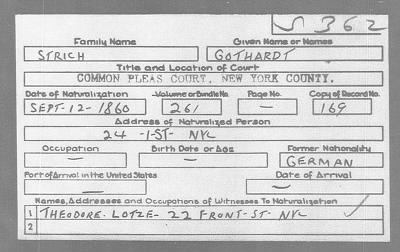 S 362
Family Name Given Name or Names
STRICH GOTHARDT
Title and Location of Court
COMMON PLEAS COURT, NEW YORK COUNTY.
Date of Naturalization Volume or Bundle No. Page No. Copy of Record No.
SEPT-12-1860 261 — 169
Address of Naturalized Person
24 -1-ST- NYC
Occupation Birth Date or Age Former Nationality
— — GERMAN
Port of Arrival in the United States Date of Arrival
— —
Names, Addresses and Occupations of Witnesses To Naturalization
1 THEODORE. LOTZE- 22 FRONT-ST- NYC
2